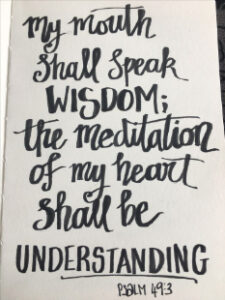 my mouth
shall speak
WISDOM;
the meditation
of my heart
shall be
UNDERSTANDING
PSALM 49:3